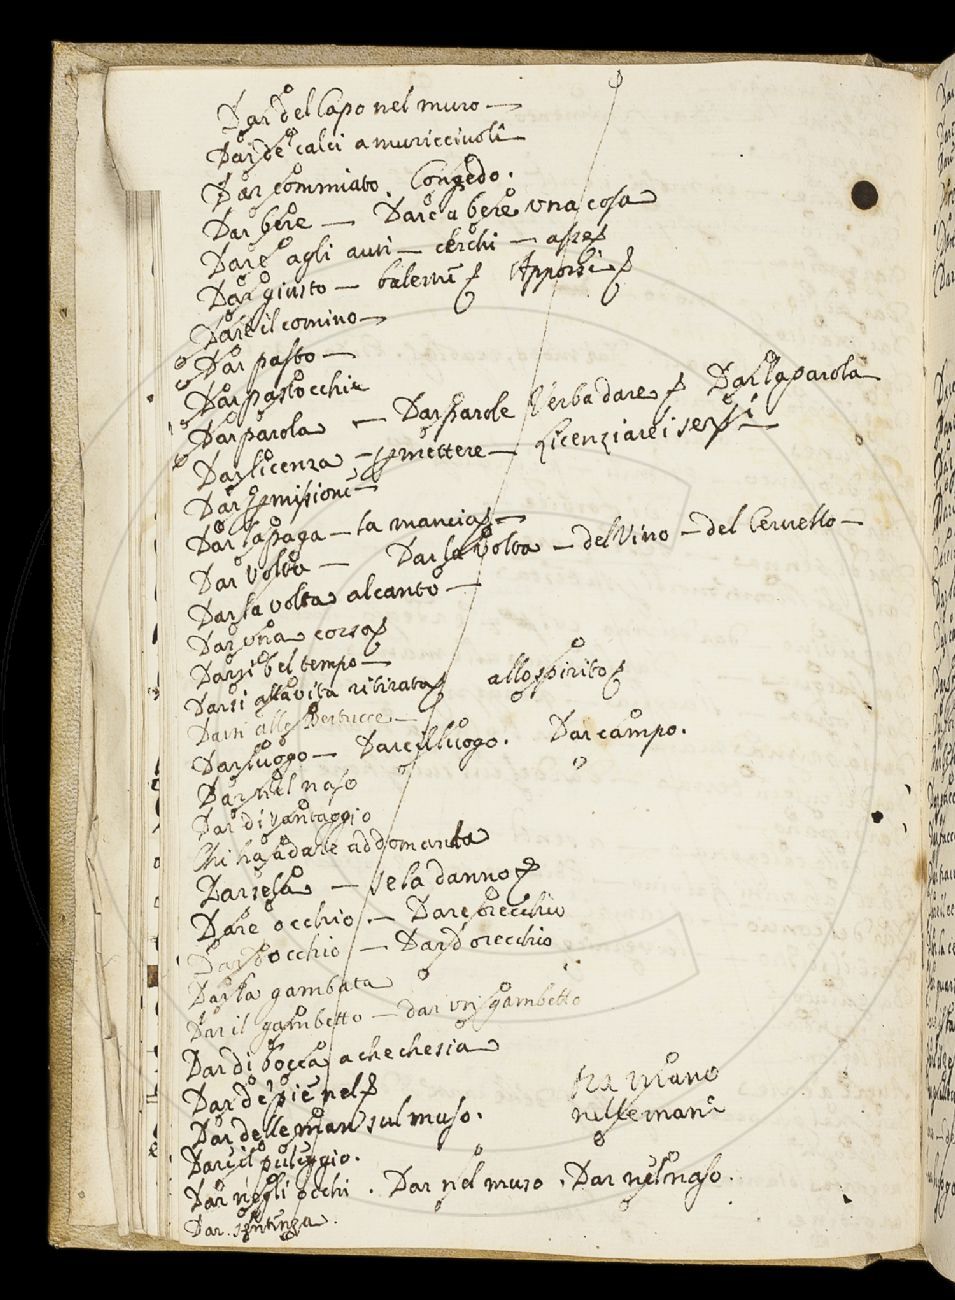 Dar del Capo nel muro —
Dar de calci a muriccivoli —
Dar commiato. Congedo.
Dar bere — Dare a bere una cosa
Dare agli auri — cerchi —
Dar giusto —
Dare il comino —
Dar pasto —
Dar pastocchie
Dar parola — Dar parole Verba dare Dar la parola
Dar licenza — Licenziare i versi —
Dar
Dar la paga — la mancia —
Dar volta — Dar la volta — del Vino — del Cervello —
Dar la volta al canto —
Dar una corsa
Darsi bel tempo —
Darsi alla vita ritirata allo spirito
Darsi alle Bertucce —
Dar luogo — Darc il luogo. Dar campo.
Dar nel naso
Dar di vantaggio
Chi ha a dare addomanda
Darsela — se la danno
Dare occhio — Dare orecchio
Dar d'occhio — Dar d'orecchio
Dar la gambata
Dar il gambetto — dar un gambetto
Dar di bocca a che che sia
Dar de piè nel tra mano
Dar delle man sul muso. nelle mani
Dare il puleggio.
Dar negli occhi. Dar nel muso. Dar nel naso.
Dar sentenza.